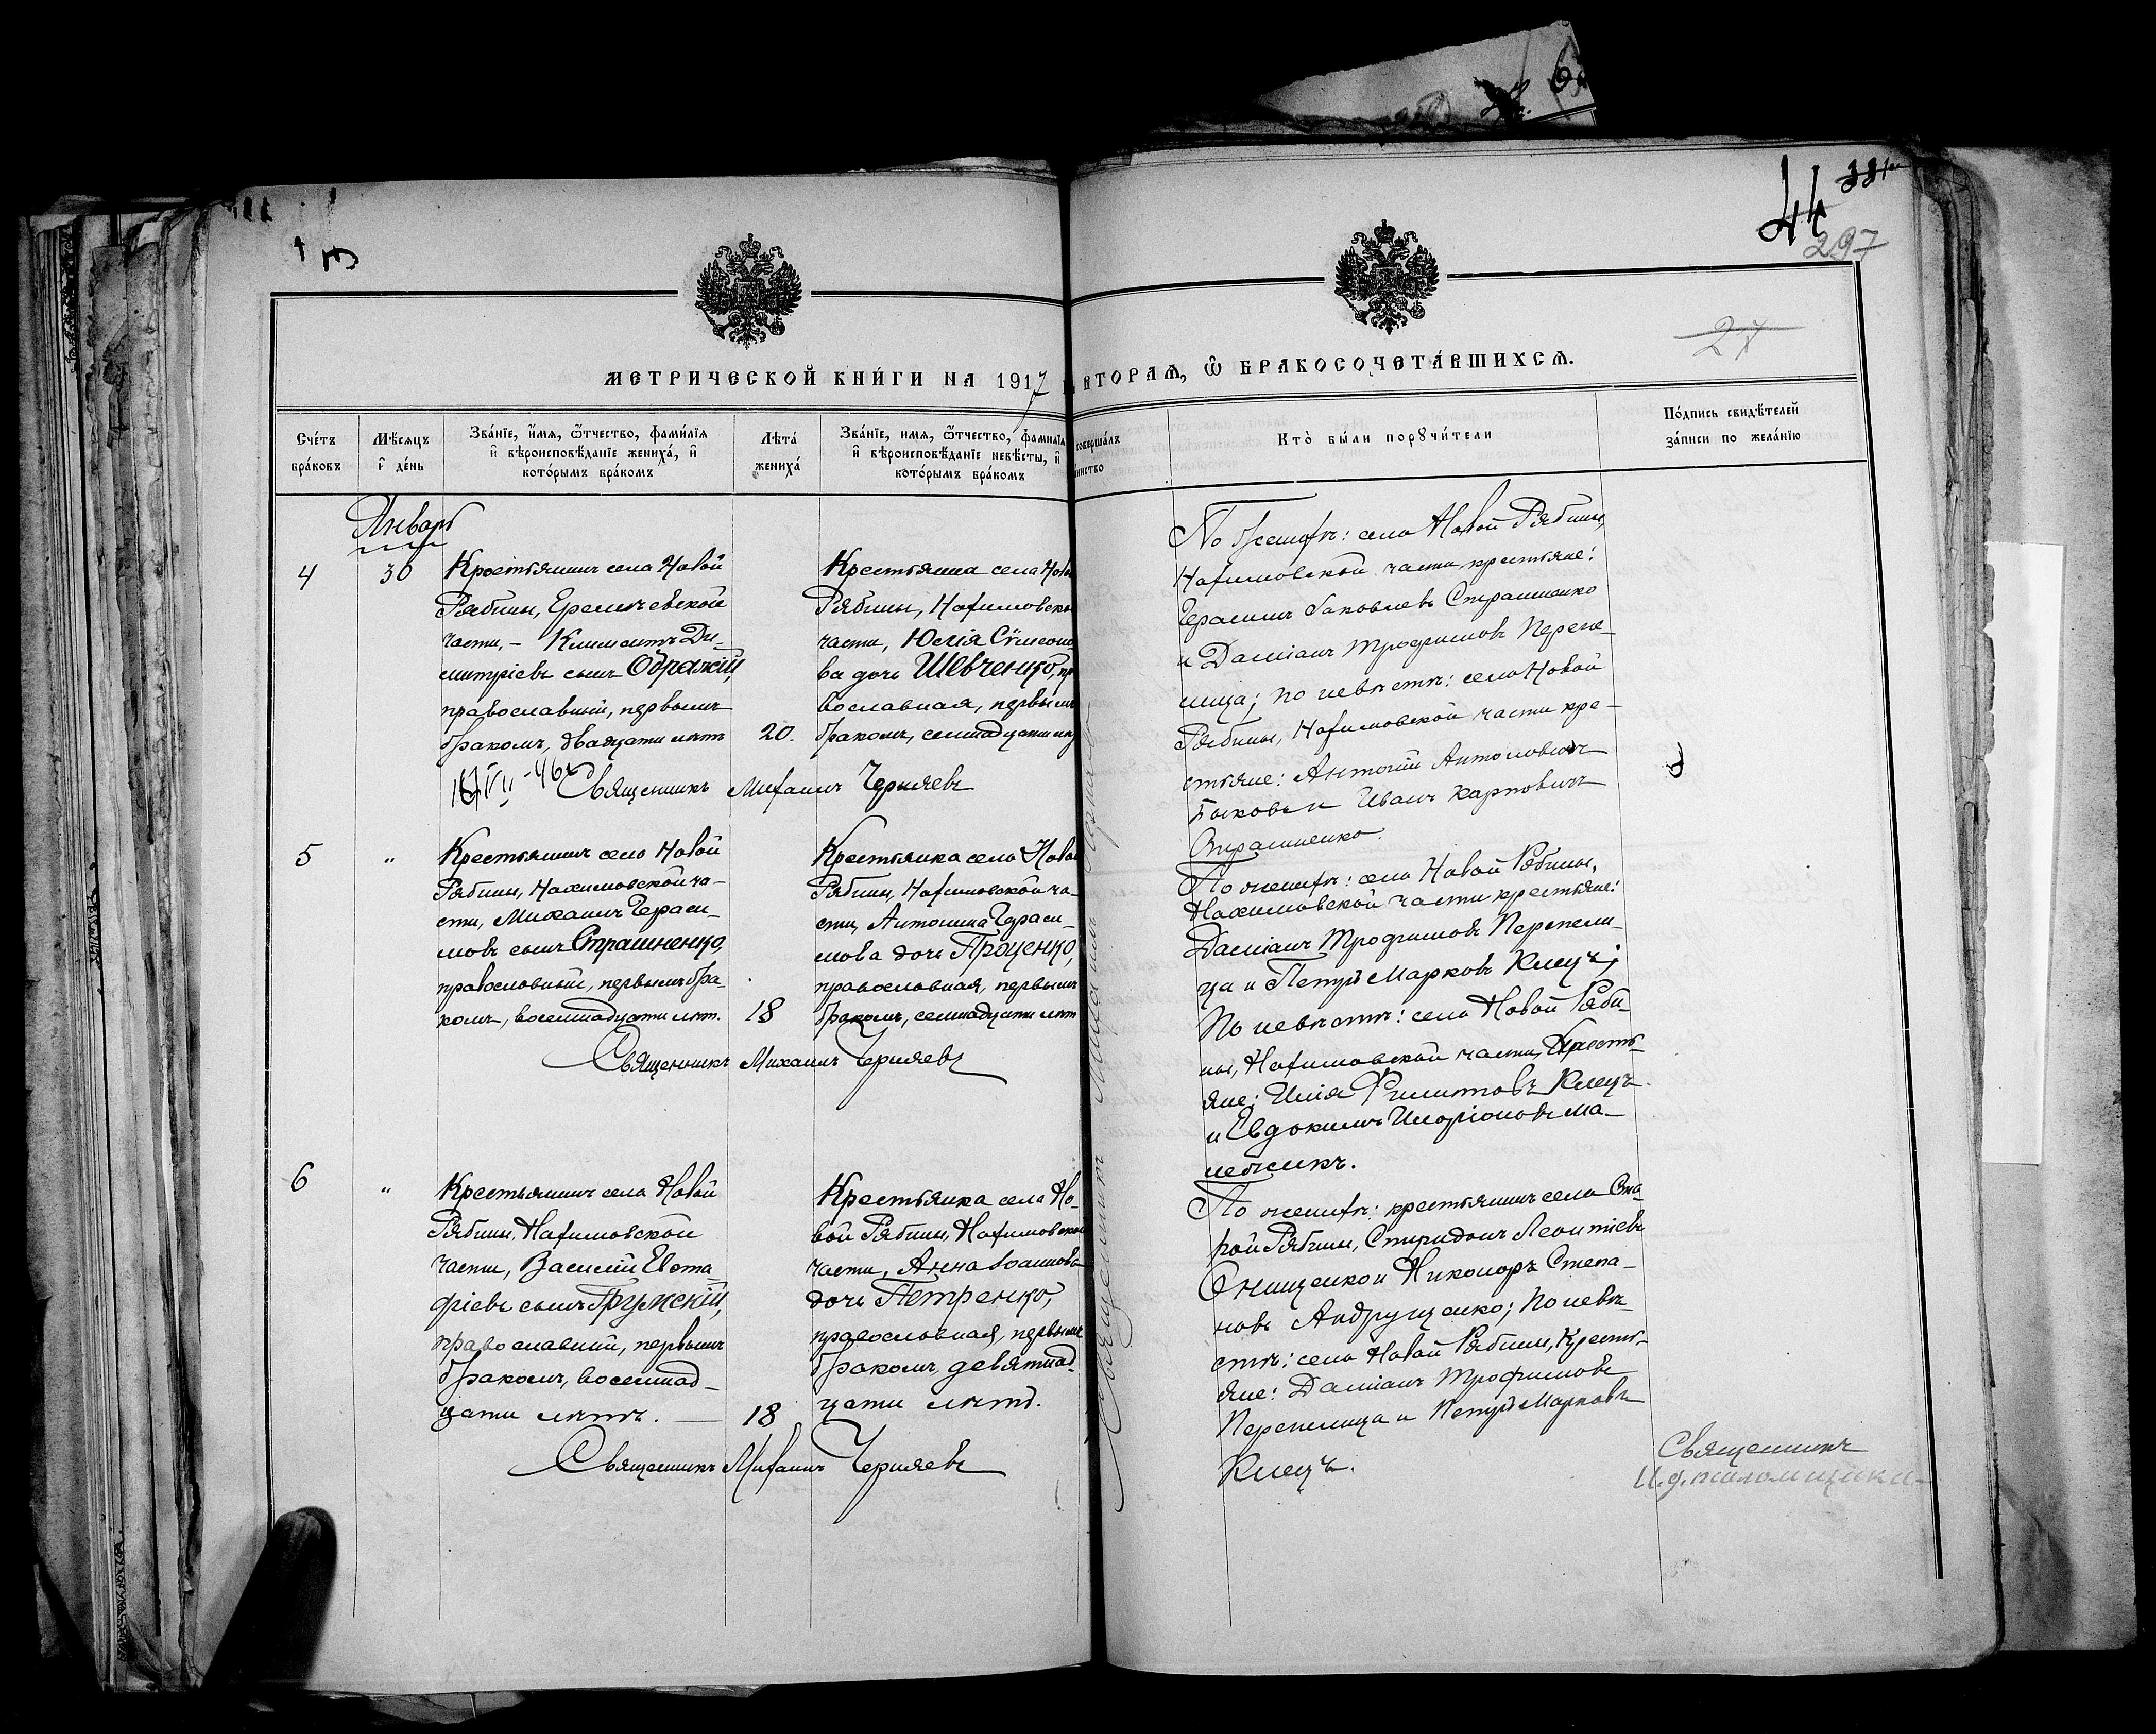 44
297
27
МЕТРИЧЕСКОЙ КНИ́ГИ НА 1917
ВТОРАѦ, Ѿ БРАКОСОЧЕТА́ВШИХСѦ.
Сче́тъ бра́ковъ
Мѣ́сѧцъ и҆ де́нь
Зва́нїе, и҆́мѧ, ѻ҆́тчество, фами́лїѧ
и҆ вѣроисповѣ́данїе жениха́, и҆
кото́рымъ бра́комъ
Лѣта́ жениха́
Зва́нїе, имѧ, ѻ҆́тчество, фами́лїѧ
и҆ вѣроисповѣ́данїе невѣ́сты, и҆
кото́рымъ бра́комъ
соверша́лъ
Кто̀ бы́ли порꙋчи́тели
По́дпись свидѣ́телей
за́писи по жела́нїю
Январь
4
30
Крестьянинъ села Новой
Рябины, Еремичевской
части, – Климентъ Ди-
митріевъ сынъ Ображій,
православный, первымъ
бракомъ, двадцати лѣтъ
20.
Крестьянка села Ново
Рябины, Нахимовско
части, Юлія Сѵмеоно
ва дочь Шевченко, пр
вославная, первым
бракомъ, семнадцати лѣ
Священникъ Михаилъ Черняевъ
По женихѣ: села Новой Рябины,
Нахимовской части крестьяне:
Герасимъ Яковлевъ Страшненко
и Даміанъ Трофимовъ Перепе-
лица; по невѣстѣ: села Новой
Рябины, Нахимовской части кре-
стьяне: Антоній Антоновичъ
Быковъ и Иванъ Карповичъ
Страшненко.
5
"
Крестьянинъ села Новой
Рябины, Нахимовской ча-
сти, Михаилъ Гераси-
мовъ сынъ Страшненко,
православный, первымъ бра-
комъ, восемнадцати лѣт.
18
Крестьянка села Ново
Рябины, Нахимовской ча-
сти, Антонина Гераси-
мова дочь Проценко,
православная, первымъ
бракомъ, семнадцати лѣт
Священникъ Михаилъ Черняевъ
По женихѣ: села Новой Рябины,
Нахимовской части крестьяне:
Даміанъ Трофимовъ Перепели-
ца и Петръ Марковъ Клецъ;
По невѣстѣ: села Новой Ряби-
ны, Нахимовской части, Кресть-
яне: Илія Филиповъ Клецъ
и Евдокимъ Иларіоновъ Ма-
нежикъ.
6
"
Крестьянинъ села Новой
Рябины, Нахимовской
части, Василій Евста
фіевъ сынъ Грумскій,
православный, первымъ
бракомъ, восемнад-
цати лѣтъ. —
18
Крестьянка села Но-
вой Рябины, Нахимовской
части, Анна Іоаннова
дочь Петренко,
православная, первымъ
бракомъ, девятнад-
цати лѣтъ.
Священникъ Михаилъ Черняевъ
По женихѣ: крестьянинъ села Ста-
рой Рябины, Спиридонъ Леонтіевъ
Онищенко и Никоноръ Степа-
новъ Андрущенко; По невѣ-
стѣ: села Новой Рябины, Кресть-
яне: Даміанъ Трофимовъ
Перепелица и Петръ Марковъ
Клецъ.
Священникъ Михаилъ
Священникъ
И.д. псаломщика